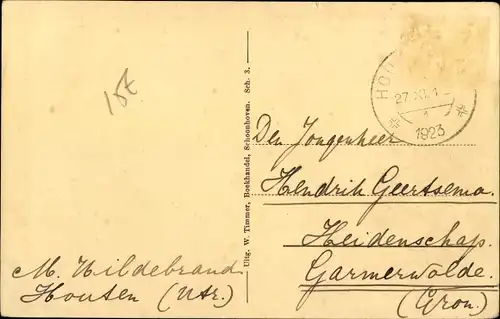 15t
HOU
27.XI.1
1
1923
Den Jongenheer
Hendrik Geertsema.
Heidenschap.
Garmerwolde.
(Gron.)
M. Hildebrand
Houten (Utr.)
Uitg. W. Timmer, Boekhandel, Schoonhoven. Sch. 3.